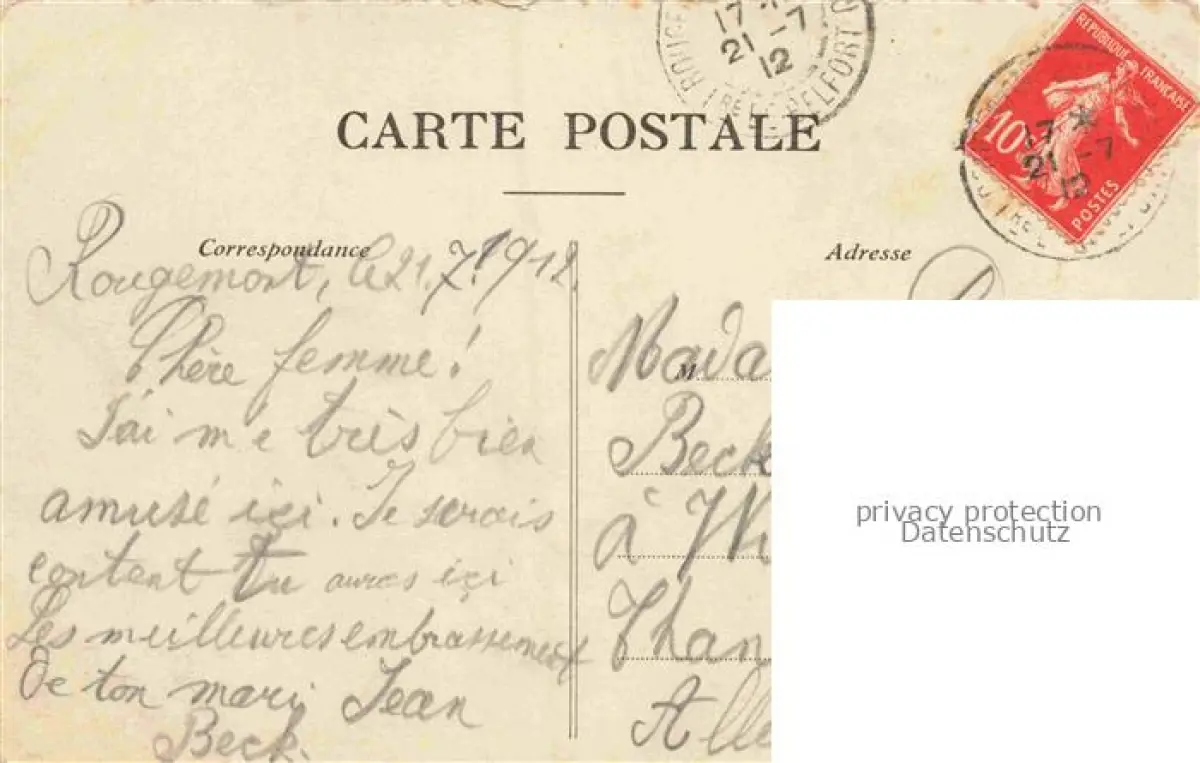 CARTE POSTALE
Correspondance
Rougemont, le 21.7.1912.
Chère femme!
J'ai m'e très bien
amusé içi. Je serais
content tu aures içi
Les meilleures embrassement
de ton mari Jean
Beck.
17
21-7
12
BELFORT
RÉPUBLIQUE FRANÇAISE
10
POSTES
17 *
21-7
12
Adresse
M
Mada
Beck
à
Than
Alle
privacy protection
Datenschutz